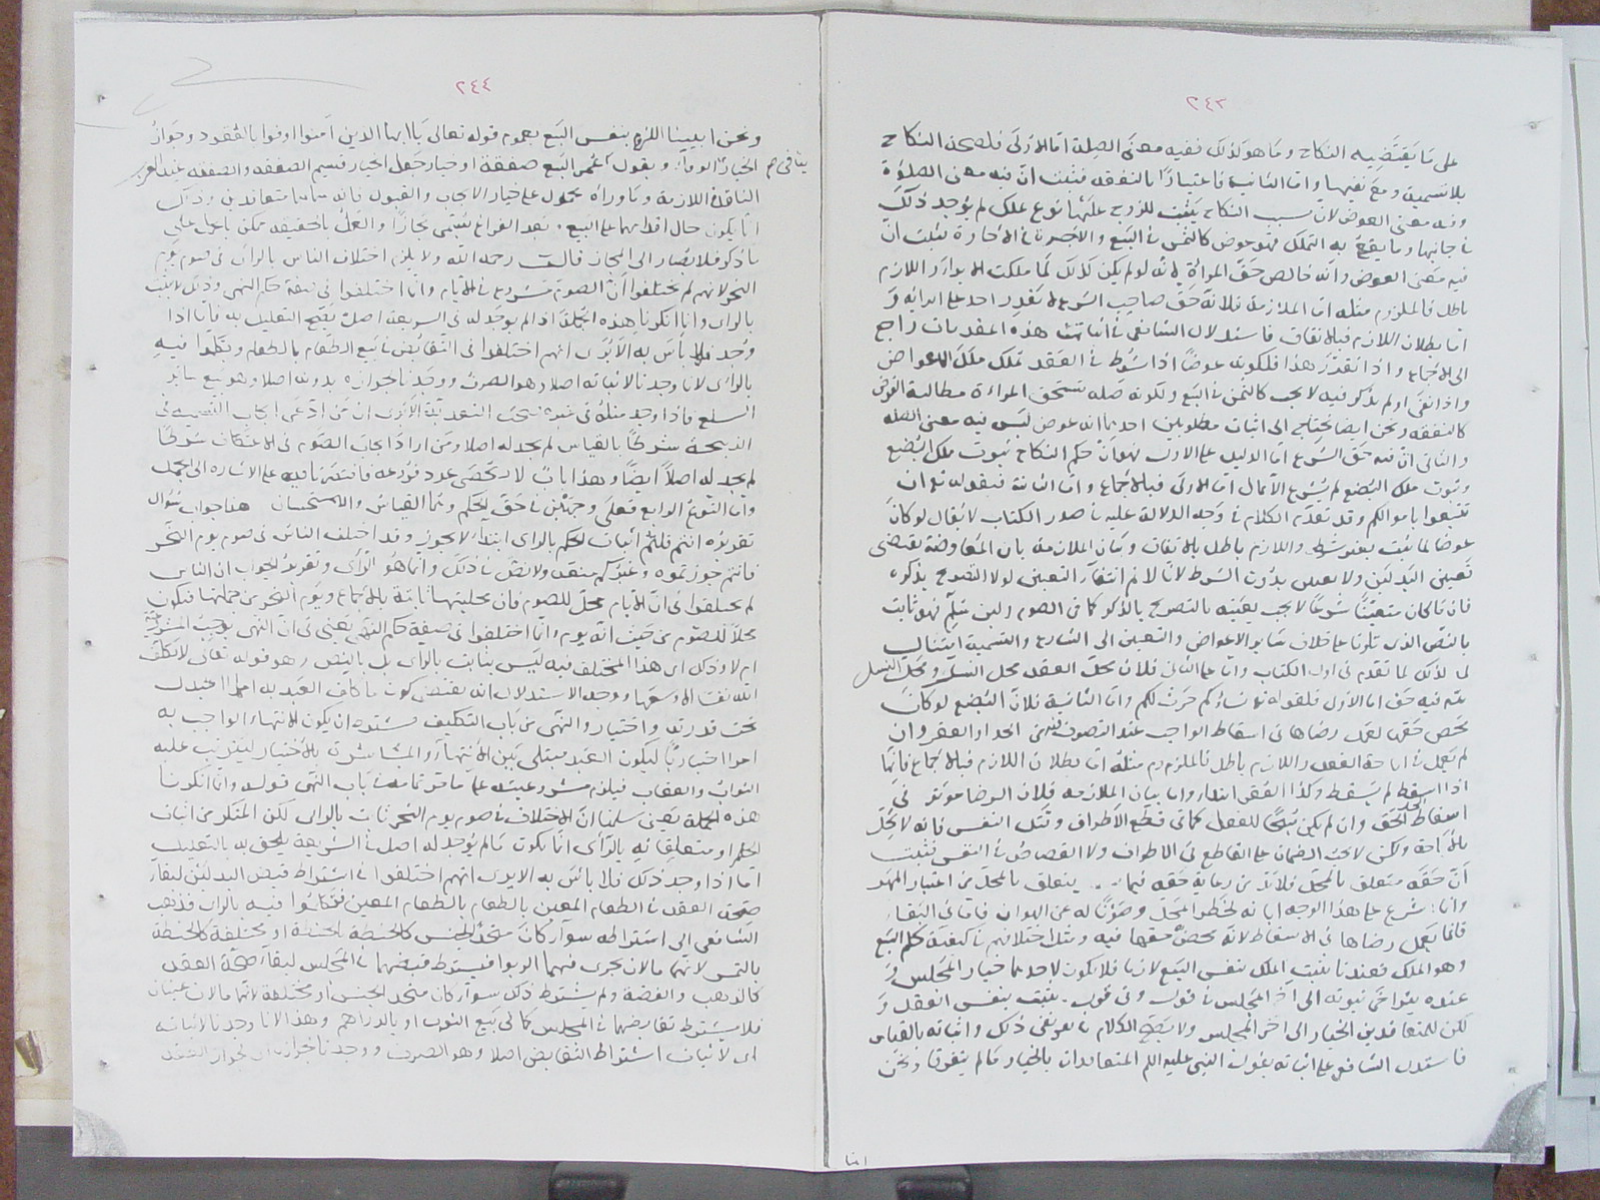 ٢٤٣
على ما يقتضيه النكاح وما هو كذلك ففيه معنى الصلة اما الاولى فلصحة النكاح
بلا تسمية ومع نفيها واما الثانية فاعتبارا بالنفقة فثبت ان فيه معنى الصلة
وفيه معنى العوض لان بسبب النكاح يثبت للزوج عليها نوع ملك لم يوجد ذلك
في جانبها وما يقع به التملك فهو عوض كالثمن في البيع والاجرة في الاجارة فثبت ان
فيه معنى العوض وانه خالص حق المراة لانه لو لم يكن كذلك لما ملكت الابراء واللازم
باطل فالملزوم مثله اما الملازمة فلانه حق صاحب الشرع لا يقدر احد على ابرائه و
اما بطلان اللازم فبالاتفاق فاستدلال الشافعي في اثبات هذه المقدمات راجع
الى الاجماع واذا تقرر هذا فلكونه عوضا اذا شرط في العقد تملك ملك الاعواض
واذا نفى او لم يذكر فيه لا يجب كالثمن في البيع ولكونه صلة تستحق المراءة مطالبة الفرض
كالنفقة ونحن ايضا نحتاج الى اثبات مطلوبين احدهما انه عوض ليس فيه معنى الصلة
والثاني ان فيه حق الشرع اما الدليل على الاول فهو ان حكم النكاح ثبوت ملك البضع
وثبوت ملك البضع لم يشرع الا بمال اما الاولى فبالاجماع واما الثانية فبقوله تع ان
تبتغوا باموالكم وقد تقدم الكلام في وجه الدلالة عليه في صدر الكتاب لا يقال لو كان
عوضا لما ثبت بغير شرط واللازم باطل بالاتفاق وبيان الملازمة بان المعاوضة يقتضي
تعيين البدلين ولا تعيين بدون الشرط لانا لا نم انتفاء التعيين لولا التصريح بذكره
فان ما كان متعينا شرعا لا يجب تعيينه بالتصريح بالذكر كما في الصوم ولئن سلم فهو ثابت
بالنص الذي تلونا على خلاف سائر الاعواض والتعيين الى الشارع والتسمية امتثال
لما لذلك لما تقدم في اول الكتاب واما على الثاني فلان محل العقد محل النسل ومحل النسل
لله فيه حق اما الاول فلقوله تع نساؤكم حرث لكم واما الثانية فلان البضع لو كان
محض حقها لعمل رضاها في اسقاط الواجب عند التصرف فيه من الحد او العقر وان
لم يعمل في اباحة الفعل واللازم باطل فالملزوم مثله اما بطلان اللازم فبالاجماع فانها
اذا اسقط لم يسقط وكذا العقر ابتداء واما بيان الملازمة فلان الرضا مؤثر في
اسقاط الحق وان لم يكن مبيحا للفعل كما في قطع الاطراف وقتل النفس فانه لا يحل
بالاباحة ولكن لا يجب الضمان على القاطع في الاطراف ولا القصاص في النفس فثبت
ان حقه متعلق بالمحل فلا بد من رعاية حقه فيما يتعلق بالمحل من اعتبار المهر
وانما شرع على هذا الوجه ابانة لخطر المحل وصونا له عن الهوان فاما في البقاء
فانما يعمل رضاها في الاسقاط لانه محض حقها فيه ومثل اختلافهم في كيفية حكم البيع
وهو الملك فعندنا يثبت الملك بنفس البيع لازما فلا يكون لاحدهما خيار المجلس و
عنده يتراخى ثبوته الى اخر المجلس في قول وفي قول يثبت بنفس العقد و
لكن للمتعاقدين الخيار الى اخر المجلس ولا يصح الكلام في نفي ذلك واثباته بالقياس
فاستدل الشافعي على اثباته بقول النبي عليه الم المتعاقدان بالخيار ما لم يتفرقا ونحن
انا
٢٤٤
ونحن اثبتنا اللزوم بنفس البيع بعموم قوله تعالى يا ايها الذين آمنوا اوفوا بالعقود وجواز
ينافي م
الخيار الوفاء وبقول عمر البيع صفقة او خيار جعل الخيار قسيم الصفقة والصفقة عند العرب
النافذة اللازمة وما رواه محمول على خيار الايجاب والقبول فانه سماهما متعاقدين وذلك
انما يكون حال اقدامهما على البيع بعد الفراغ يسمى مجازا والعمل بالحقيقة ممكن بالحمل على
ما ذكر فلا يصار الى المجاز قال رحمه الله ولا يلزم اختلاف الناس بالراى في صوم يوم
النحر لانهم لم يختلفوا ان الصوم مشروع في الايام وانما اختلفوا في صفة حكم النهي وذلك لا يثبت
بالراى وانما انكرنا هذه الجملة اذا لم يوجد له في الشريعة اصل يصح التعليل به فاما اذا
وجد فلا باس به الا يرى انهم اختلفوا في التقابض في بيع الطعام بالطعام وتكلموا فيه
بالراى لانا وجدنا لاثباته اصلا وهو الصرف ووجدنا لجوازه بدونه اصلا وهو بيع سائر
السلع فاذا وجد مثله في غيره الا يرى ان من ادعى ايجاب التسمية في
الذبيحة شرطا بالقياس لم يجد له اصلا ومن اراد ايجاب الصوم في الاعتكاف شرطا
لم يجد له اصلا ايضا وهذا باب لا يحصى عدد فروعه فاقتصرنا فيه على الاشارة الى الجمل
واما النوع الرابع فعلى وجهين في حق الحكم وهما القياس والاستحسان هذا جواب سؤال
تقريره انتم قلتم اثبات الحكم بالراى ابتداء لا يجوز وقد اختلف الناس في صوم يوم النحر
فانتم جوزتموه وغيركم منعه ولا نص في ذلك وانما هو الراى وتقرير الجواب ان الناس
لم يختلفوا في ان الايام محل للصوم فان محليتها ثابتة بالاجماع ويوم النحر من جملتها فيكون
محلا للصوم من حيث انه يوم وانما اختلفوا في صفة حكم النهي يعني في ان النهي يوجب المشروعية
ام لا وذلك اي هذا المختلف فيه ليس بثابت بالراى بل بالنص وهو قوله تعالى لا يكلف
الله نفسا الا وسعها ووجه الاستدلال انه يقتضي كون ما كلف العبد به امرا يدخل
تحت قدرته واختياره والنهي من باب التكليف فيستدعي ان يكون الانتهاء الواجب به
امرا اختياريا ليكون العبد مبتلى بين الانتهاء والمباشرة بالاختيار ليترتب عليه
الثواب والعقاب فيلزم مشروعيته على ما مر تمامه في باب النهي قوله وانما انكرنا
هذه الجملة يعني سلمنا ان الاختلاف في صوم يوم النحر ثابت بالراى لكن المنكر من اثبات
الحكم او متعلقاته بالراى انما يكون فيما لم يوجد له اصل في الشريعة يلحق به بالتعليل
اما اذا وجد ذلك فلا باس به الا يرى انهم اختلفوا في اشتراط قبض البدلين لبقاء
صحة العقد في الطعام المعين بالطعام بالطعام المعين فتكلموا فيه بالراى فذهب
الشافعي الى اشتراطه سواء كان متحد الجنس كالحنطة بالحنطة او مختلفه كالحنطة
بالتمر لانهما مالان يجري فيهما الربوا فيشترط قبضهما في المجلس لبقاء صحة العقد
كالذهب والفضة ولم يشترط ذلك سواء كان متحد الجنس او مختلفه لانهما مالان عينان
فلا يشترط تقابضهما في المجلس كما في بيع الثوب او بالدراهم وهذا لانا وجدنا لاثباته
اي لاثبات اشتراط التقابض اصلا وهو الصرف ووجدنا لجوازه اي لجواز العقد